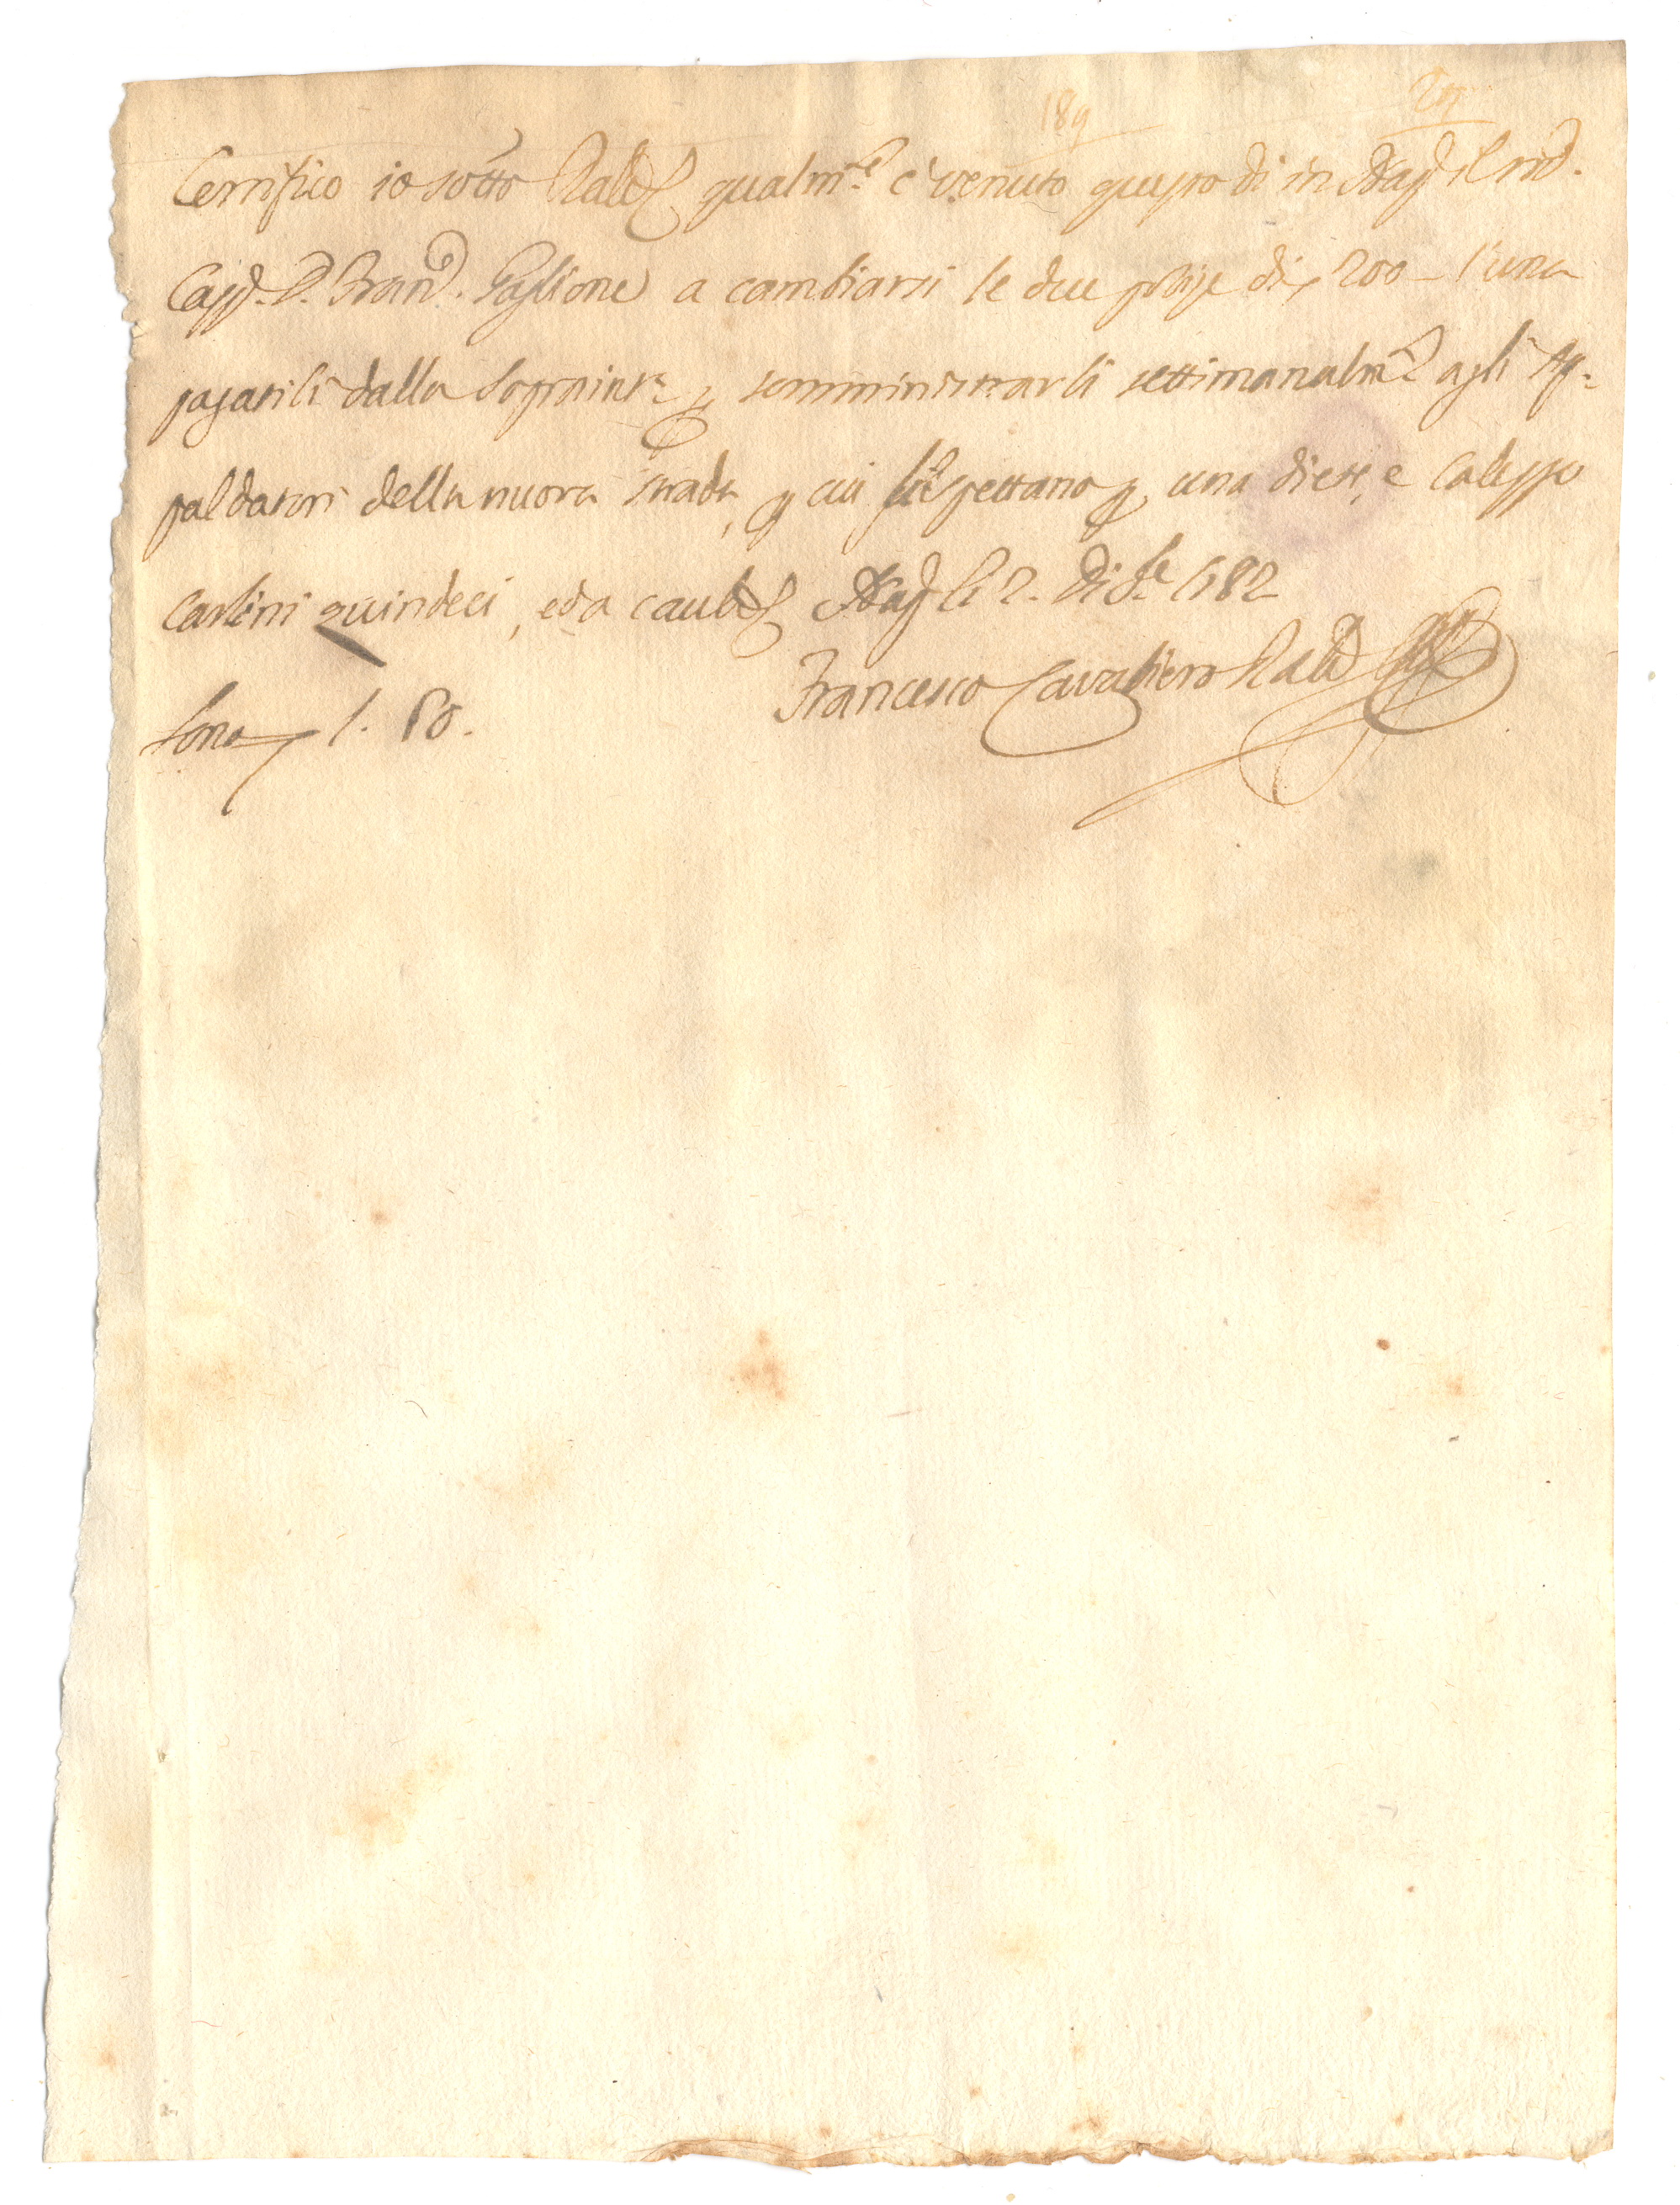 189
Certifico io sotto Raz.le qualm.te è venuto questo di in Nap. il mo.
Cass. D. Fran.co Paglione a cambiarsi le due polise di 200 - l'una
pagatili dalla Sopraint.e p somministrarli settimanalm.te agli Ap=
paldatori della nuova strada, p cui li spettano p una dieta, e calesso
Carlini quindeci, ed a cautela Nap. li 2. Di
Sono 1. 50.
Francesco Cavaliero